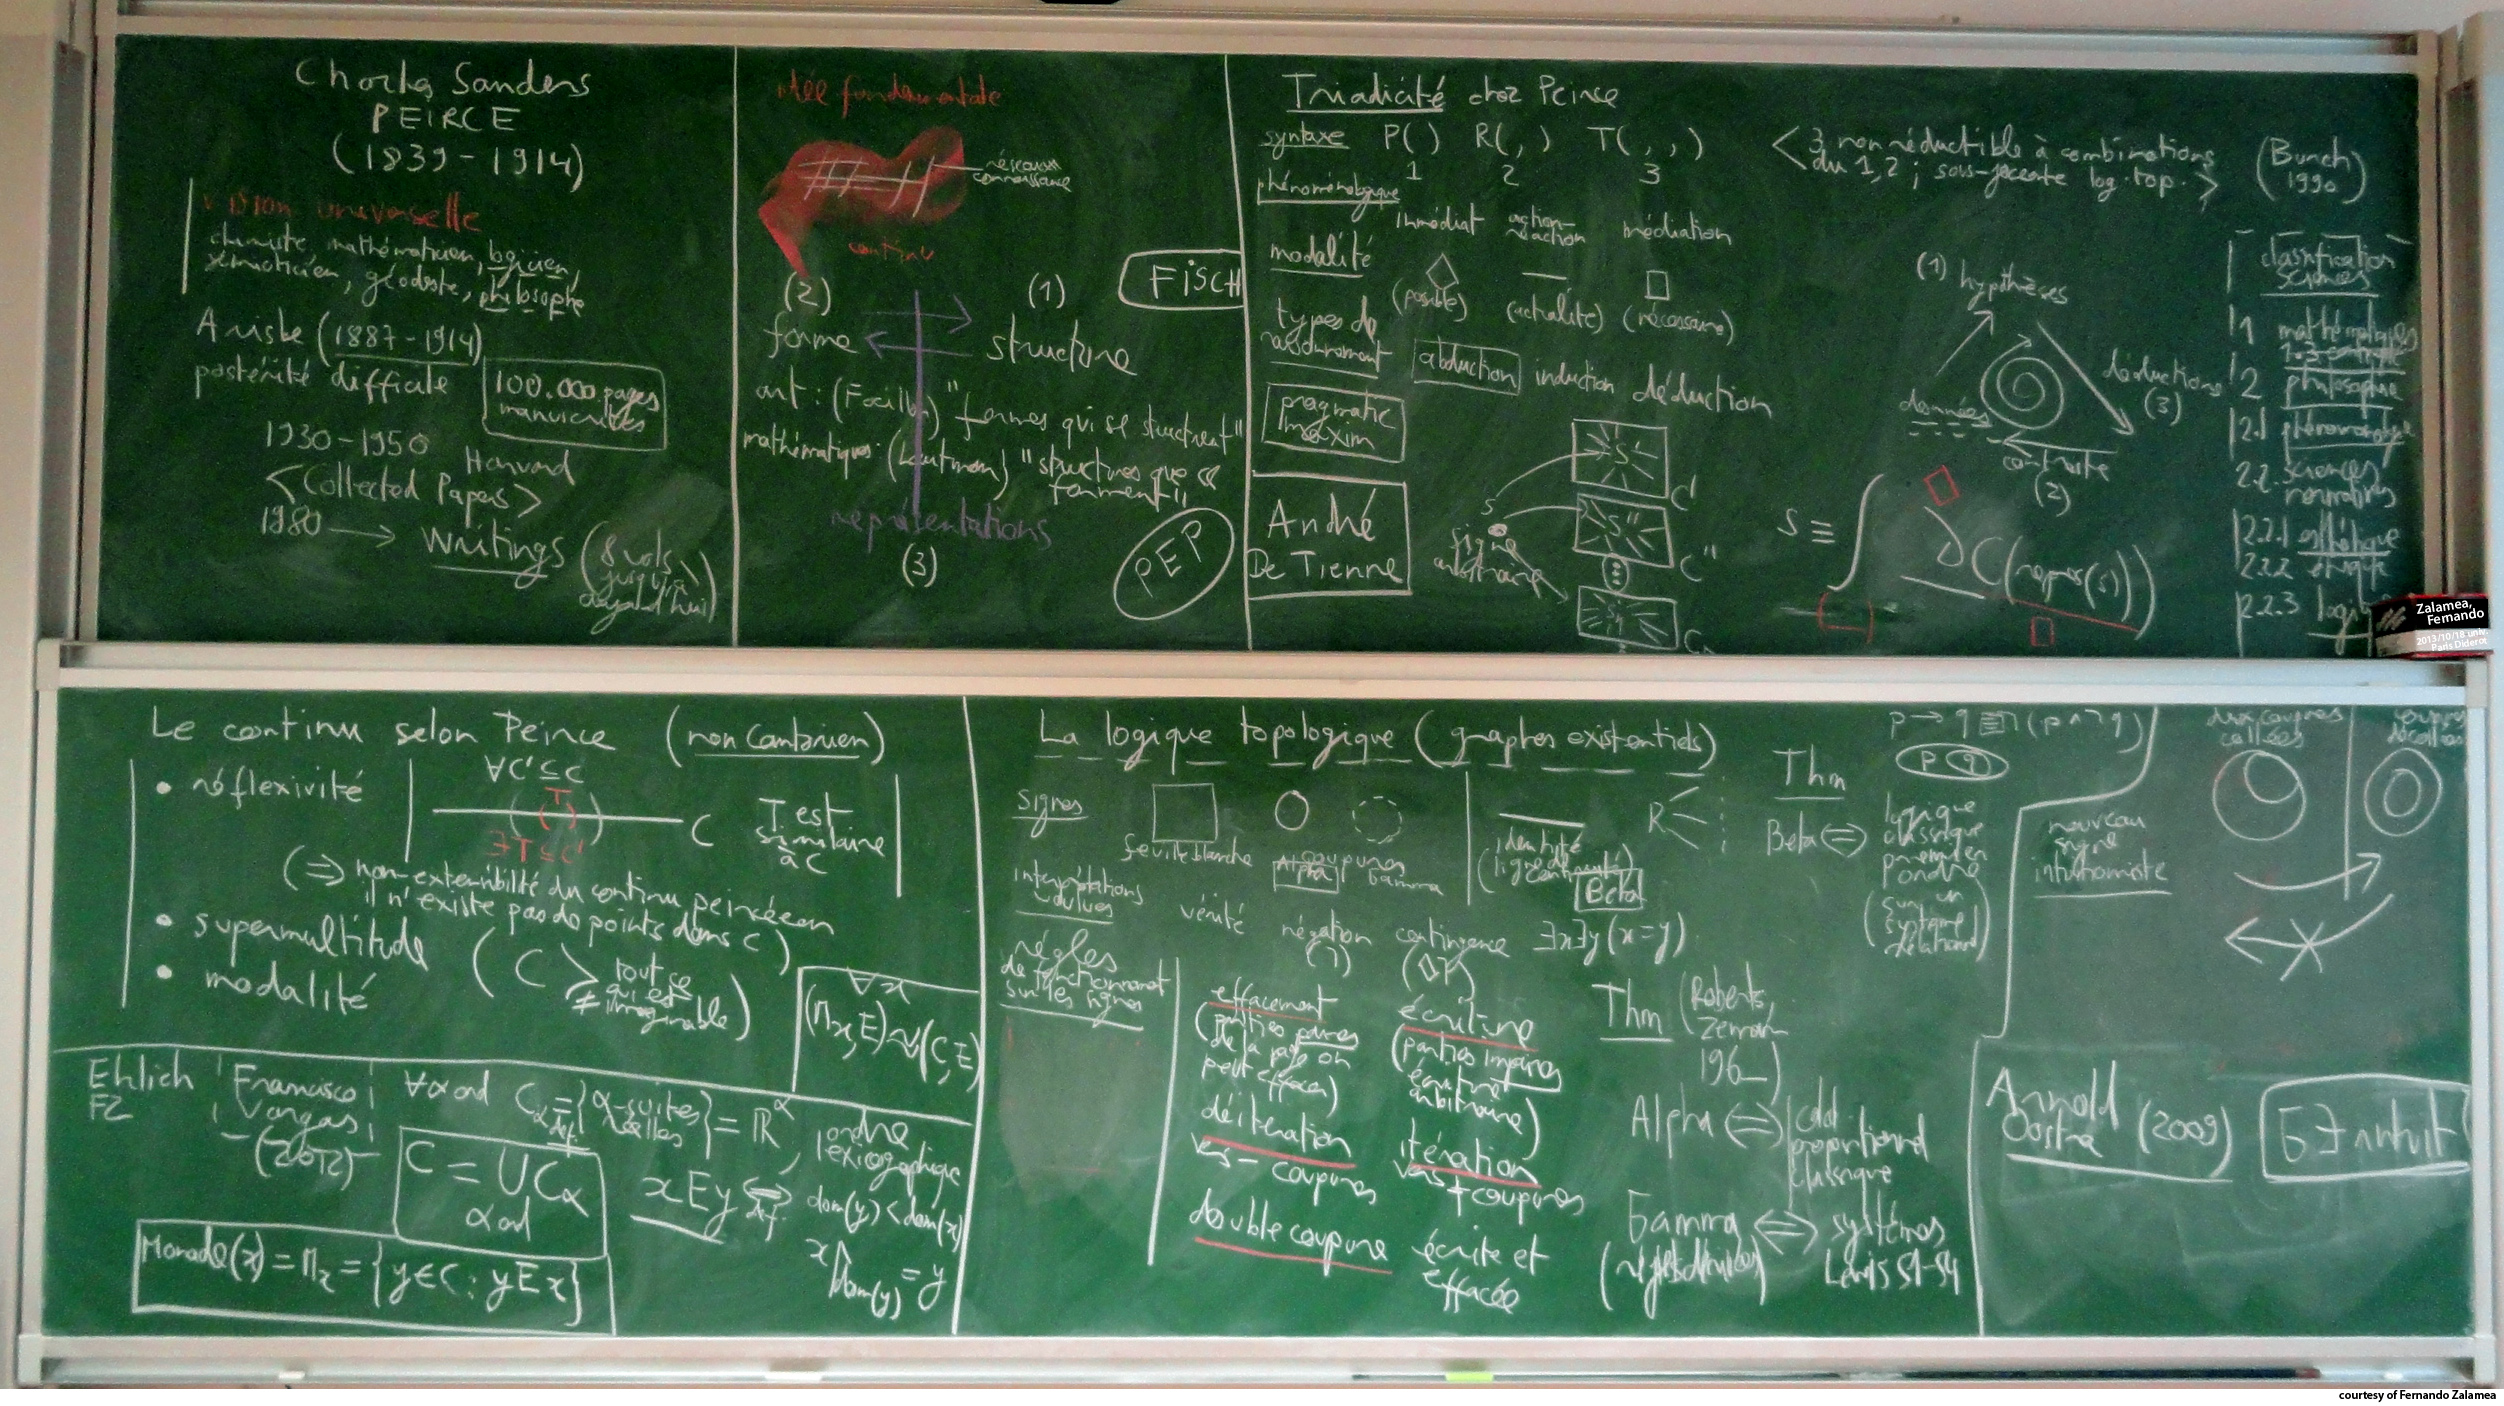 Charles Sanders
PEIRCE
(1839-1914)
vision universelle
chimiste, mathématicien, logicien,
sémioticien, géodeste, philosophe
Arisbe (1887-1914)
postérité difficile
100.000 pages
manuscrites
1930-1950
Harvard
<Collected Papers>
1980 → Writings (8 vols
jusqu'à
aujourd'hui)
idée fondamentale
réseaux
connaissance
continu
(2)
(1)
forme
structure
art: (Focillon) "formes qui se structurent"
mathématiques: (Lautman) "structures que se
forment"
représentations
(3)
FISCH
PEP
Triadicité chez Peirce
syntaxe P( ) R( , ) T( , , )
1 2 3
<3 non réductible à combinations
du 1,2; sous-jacente log. top.>
(Burch
1990)
phénoménologique
immédiat action-
réaction médiation
modalité
(possible) (actualité) (nécessaire)
types de
raisonnement
abduction induction déduction
pragmatic
maxim
André
De Tienne
s
signe
arbitraire
S'
C'
S''
C''
(1) hypothèses
déductions
(3)
données
contraste
(2)
S ≡ ∫ ◇C(repres(s))
classification
sciences
1 mathématiques
2 philosophie
2.1 phénoménologie
2.2. sciences
normatives
2.2.1 esthétique
2.2.2 éthique
2.2.3
Zalamea,
Fernando
2013/10/18 univ.
Paris Diderot
Le continu selon Peirce (non Cantorien)
• réflexivité
∀C'⊆C
T
∃T⊆C'
C
T est
similaire
à C
(⇒ non-extensibilité du continu peircéen
il n'existe pas de points dans C)
• supermultitude (C > tout ce
qui est
≠ imaginable)
• modalité
∀x
(Mx,E)∼(C,E)
Ehrlich
FZ
Francisco
Vargas
(2012)
∀α ord Cα = {α-suites
réelles} = ℝ^α, ordre
déf.
lexicographique
C = ∪Cα
α ord
xEy ⇔ dom(y)<dom(x)
déf.
x↾dom(y) = y
Monade(x) = Mx = {y∈C : yEx}
La logique topologique (graphes existentiels)
signes
feuille blanche
coupures
Alpha Gamma
identité
(ligne de
continuité)
Beta
R
interprétations
voulues
vérité négation contingence ∃x∃y(x=y)
(¬) (◇¬)
règles
de fonctionnement
sur les signes
effacement
(parties paires
de la page on
peut effacer)
écriture
(parties impaires
écriture
arbitraire)
déitération
vers - coupures
itération
vers + coupures
double coupure écrite et
effacée
Thm
Beta ⇔ logique
classique
premier
ordre
(sur un
système
relationnel)
p → q ≡ ¬(p ∧ ¬q)
p q
Thm (Roberts,
Zeman
196_)
Alpha ⇔ calcul
propositionnel
classique
Gamma ⇔ systèmes
Lewis S1-S4
deux coupures
collées
coupures
décollées
nouveau
signe
intuitioniste
Arnold
Oostra (2009)
courtesy of Fernando Zalamea